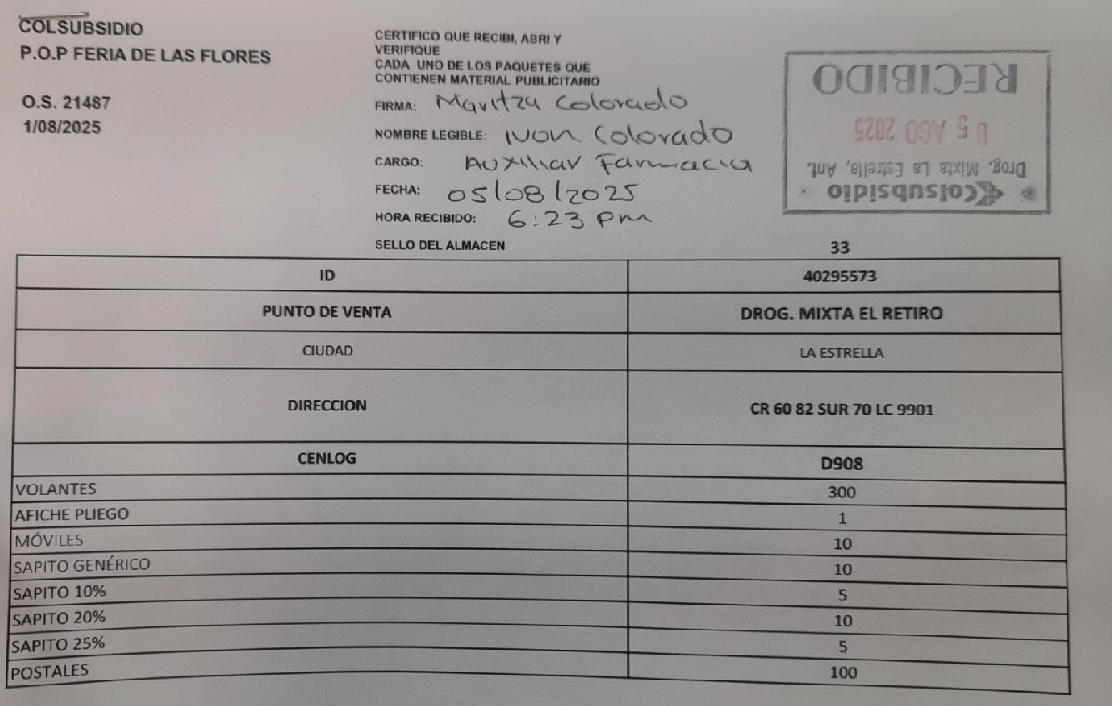 COLSUBSIDIO
P.O.P FERIA DE LAS FLORES
O.S. 21487
1/08/2025
CERTIFICO QUE RECIBI, ABRI Y
VERIFIQUE
CADA UNO DE LOS PAQUETES QUE
CONTIENEN MATERIAL PUBLICITARIO
FIRMA: Maritza Colorado
NOMBRE LEGIBLE: Ivon Colorado
CARGO: Auxiliar Farmacia
FECHA: 05/08/2025
HORA RECIBIDO: 6:23 pm
SELLO DEL ALMACEN
Colsubsidio
Drog. Mixta La Estrella, Ant.
05 AGO 2025
RECIBIDO
33
ID 40295573
PUNTO DE VENTA DROG. MIXTA EL RETIRO
CIUDAD LA ESTRELLA
DIRECCION CR 60 82 SUR 70 LC 9901
CENLOG D908
VOLANTES 300
AFICHE PLIEGO 1
MÓVILES 10
SAPITO GENÉRICO 10
SAPITO 10% 5
SAPITO 20% 10
SAPITO 25% 5
POSTALES 100